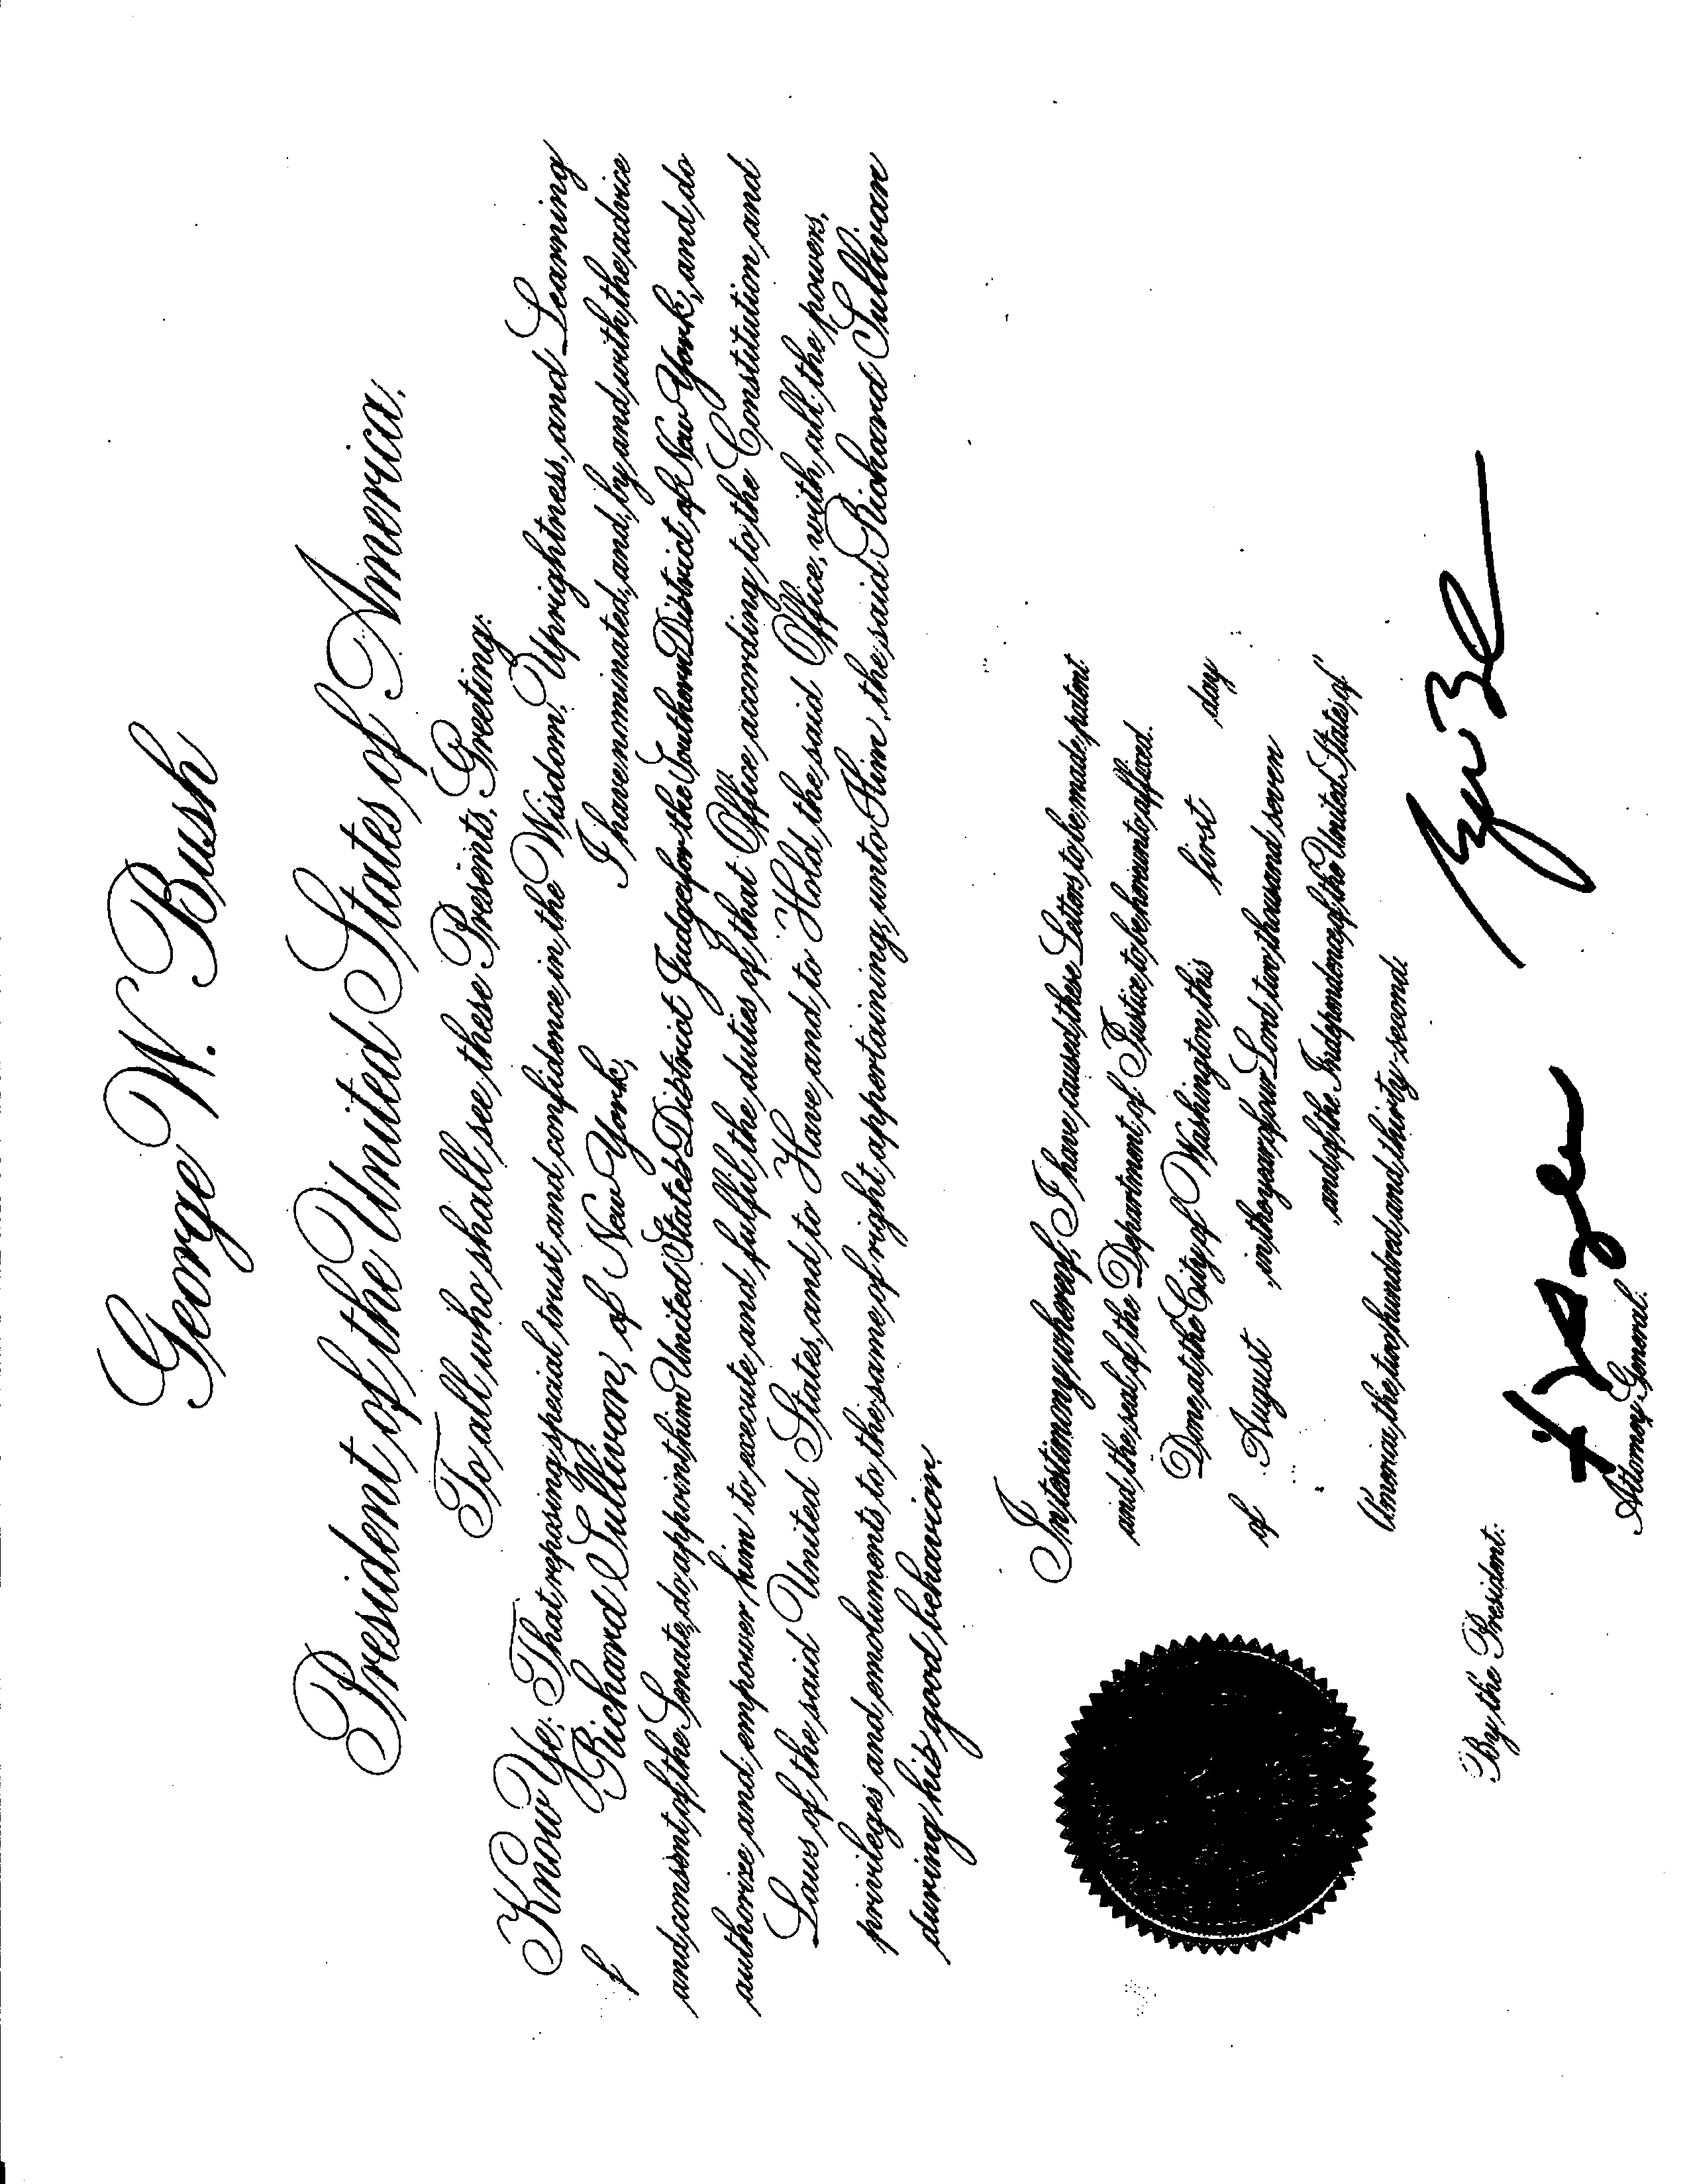 George W. Bush
President of the United States of America,
To all who shall see these Presents, Greeting:
Know Ye; That reposing special trust and confidence in the Wisdom, Uprightness, and Learning
of Richard Sullivan, of New York, I have nominated, and, by and with the advice
and consent of the Senate, do appoint him United States District Judge for the Southern District of New York, and do
authorize and empower him to execute and fulfil the duties of that Office according to the Constitution and
Laws of the said United States, and to Have and to Hold the said Office, with all the powers,
privileges and emoluments to the same of right appertaining, unto Him, the said Richard Sullivan
during his good behavior.
In testimony whereof, I have caused these Letters to be made patent
and the seal of the Department of Justice to be hereunto affixed.
Done at the City of Washington, this first day
of August, in the year of our Lord two thousand seven
and of the Independence of the United States of
America the two hundred and thirty-second.
By the President:
Attorney General.